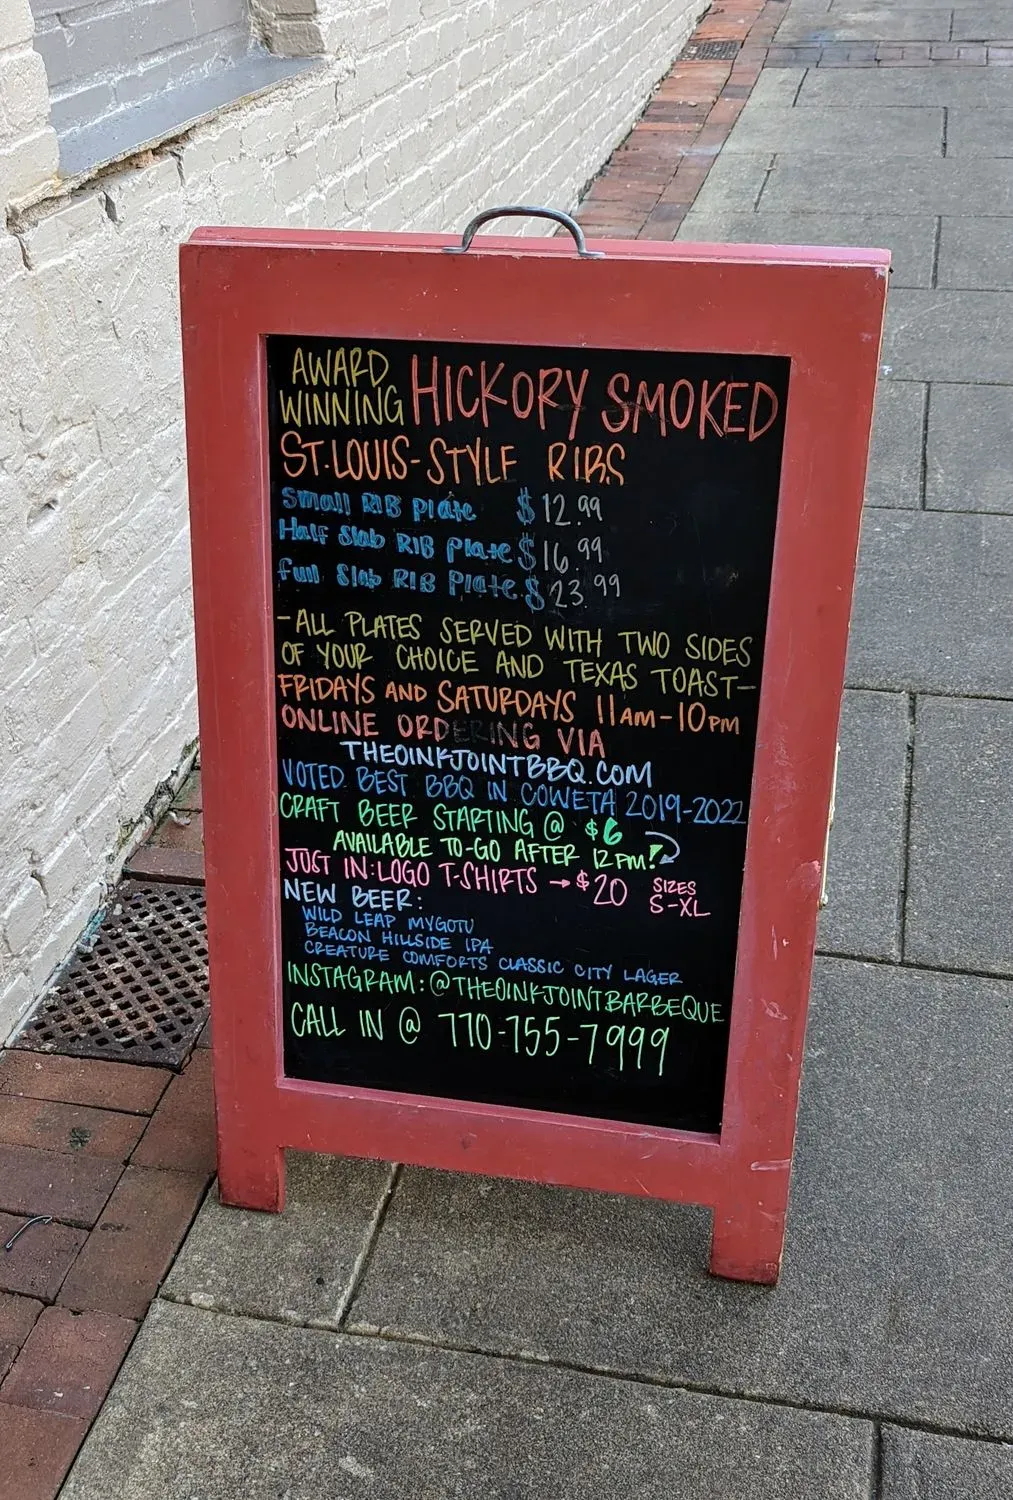 AWARD
WINNING HICKORY SMOKED
ST. LOUIS-STYLE RIBS
Small RIB Plate $12.99
Half Slab RIB Plate $16.99
Full Slab RIB Plate $23.99
-ALL PLATES SERVED WITH TWO SIDES
OF YOUR CHOICE AND TEXAS TOAST-
FRIDAYS AND SATURDAYS 11AM-10PM
ONLINE ORDERING VIA
THEOINKJOINTBBQ.COM
VOTED BEST BBQ IN COWETA 2019-2022
CRAFT BEER STARTING @ $6
AVAILABLE TO-GO AFTER 12PM!
JUST IN: LOGO T-SHIRTS → $20 SIZES
S-XL
NEW BEER:
WILD LEAP MYGOTU
BEACON HILLSIDE IPA
CREATURE COMFORTS CLASSIC CITY LAGER
INSTAGRAM: @THEOINKJOINTBARBEQUE
CALL IN @ 770-755-7999